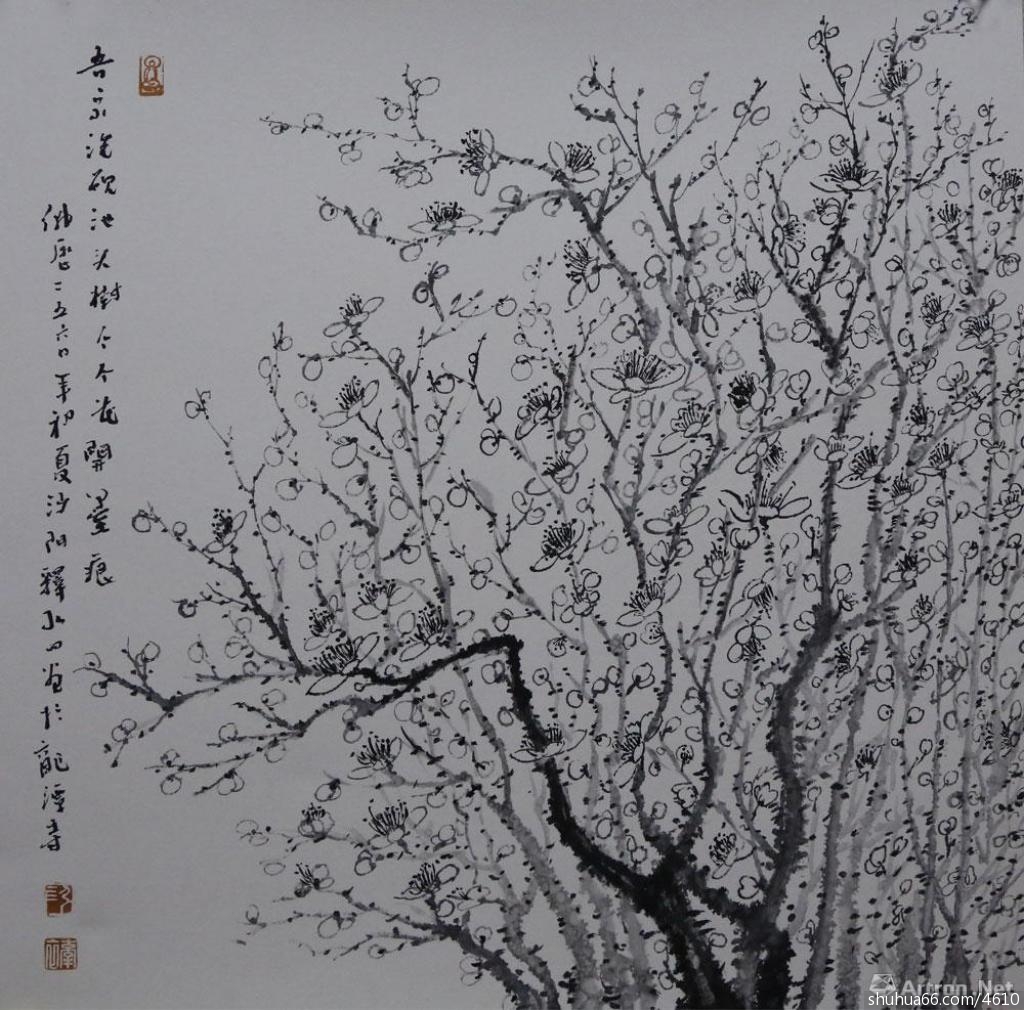 吾家洗砚池头樹个个花開墨痕
佛歷二五六〇年初夏沙門釋 画於龍潭寺
Artron.Net
shuhua66.com/4610